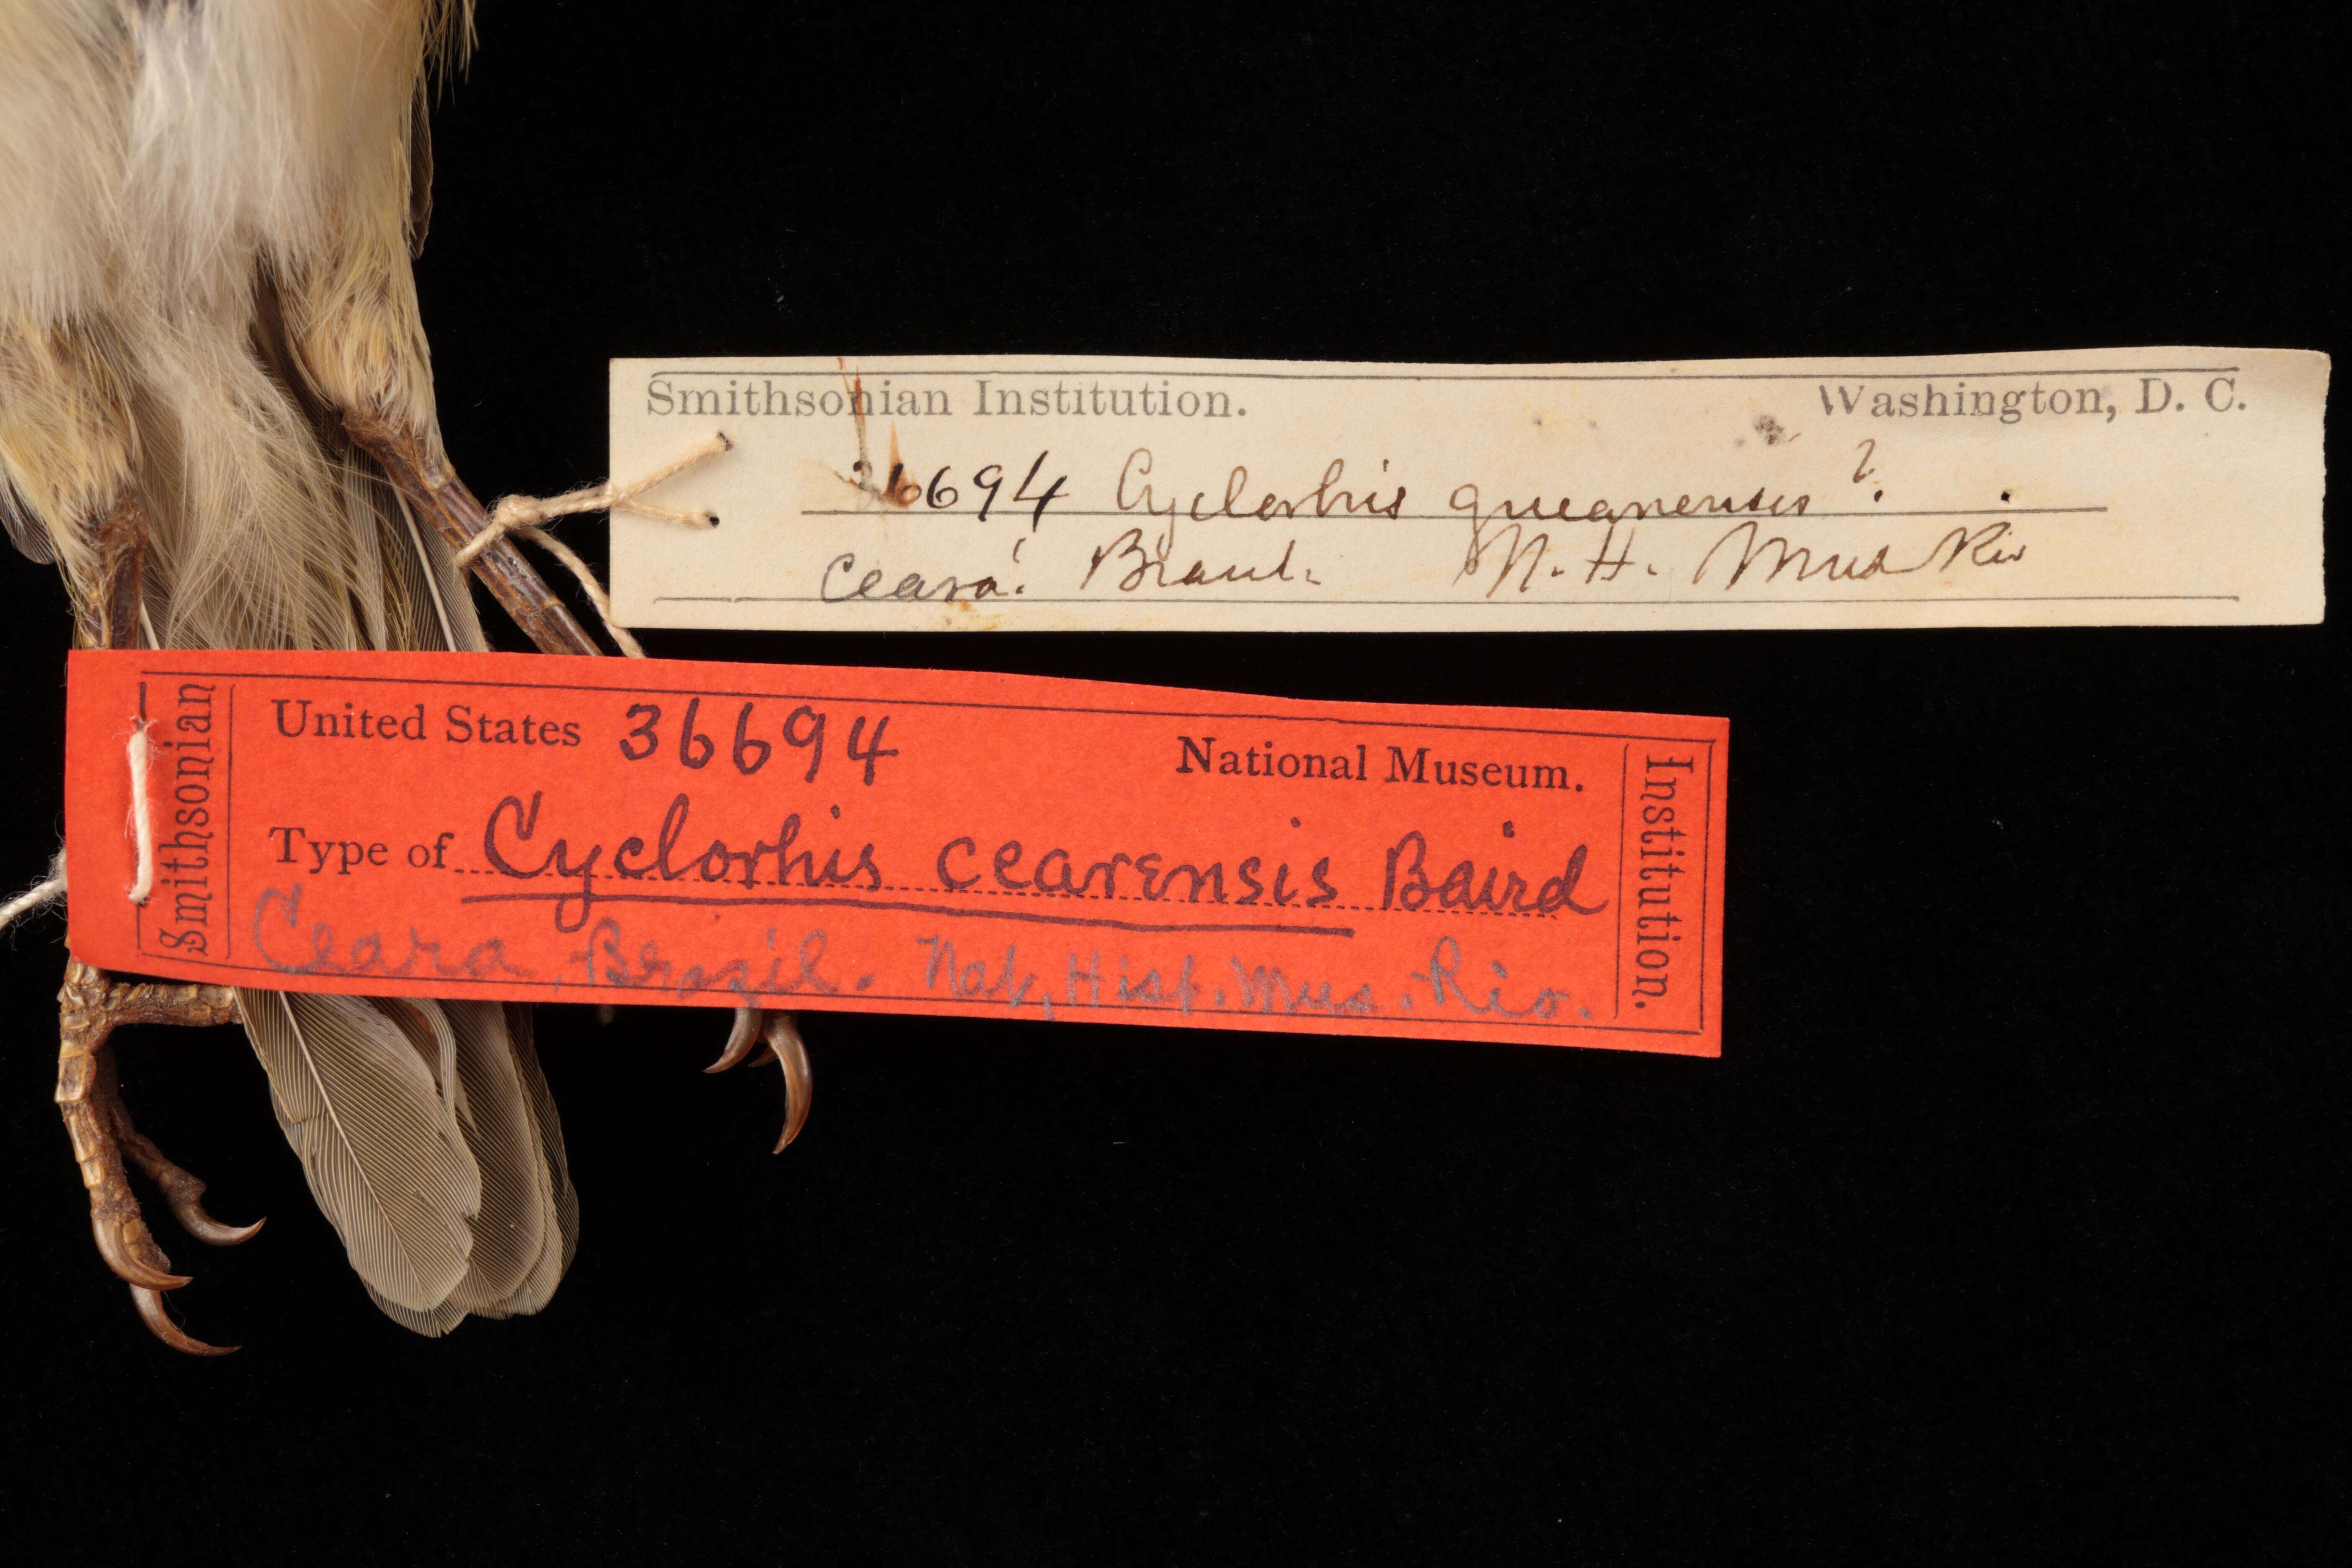 Smithsonian Institution. Washington, D. C.
36694 Cyclorhis guianensis ?.
Ceará. Brazil. N. H. Mus Rio
United States 36694 National Museum.
Type of Cyclorhis cearensis Baird
Ceara, Brazil. Nat. Hist. Mus. Rio.
Smithsonian
Institution.